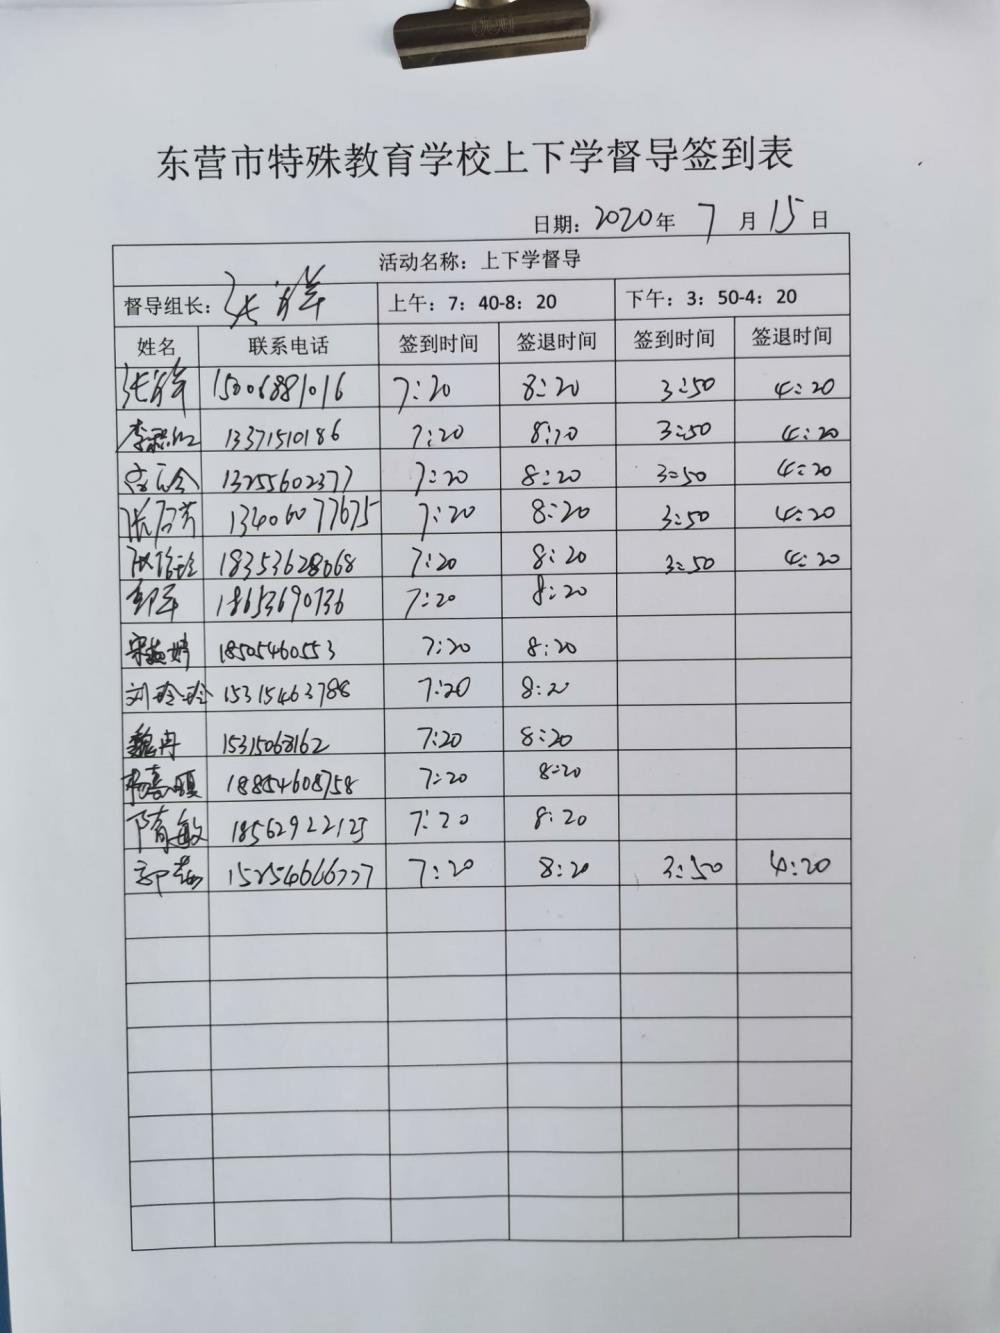 东营市特殊教育学校上下学督导签到表
日期：2020年 7 月 15 日
活动名称：上下学督导
督导组长： 上午：7：40-8：20 下午：3：50-4：20
姓名 联系电话 签到时间 签退时间 签到时间 签退时间
15006881016 7:20 8:20 3:50 4:20
13371510186 7:20 8:20 3:50 4:20
13255602377 7:20 8:20 3:50 4:20
13406077675 7:20 8:20 3:50 4:20
18353628068 7:20 8:20 3:50 4:20
彭军 18653690736 7:20 8:20
18505460553 7:20 8:20
刘玲玲 15315463788 7:20 8:20
魏冉 15315068162 7:20 8:20
18854608758 7:20 8:20
隋敏 18562922125 7:20 8:20
15254666777 7:20 8:20 3:50 4:20